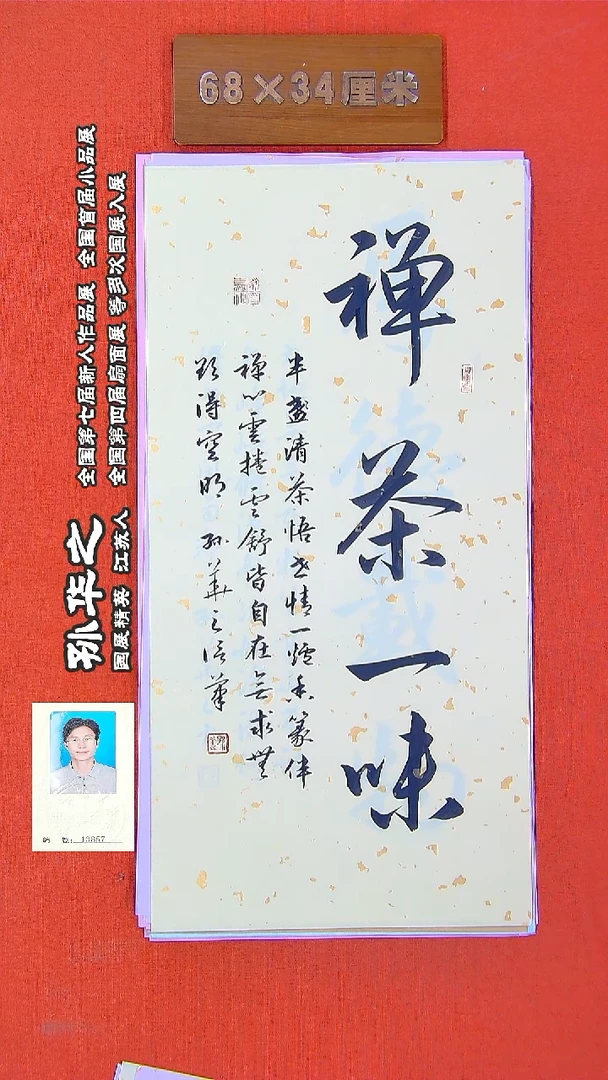 68×34厘米
禅茶一味
半盏清茶悟世情一炉香篆伴
禅心云捲云舒皆自在無求無
欲得空明 孙華之信筆
全国第七届新人作品展 全国首届小品展
全国第四届扇面展 等多次国展入展
孙华之
国展精英 江苏人
13857